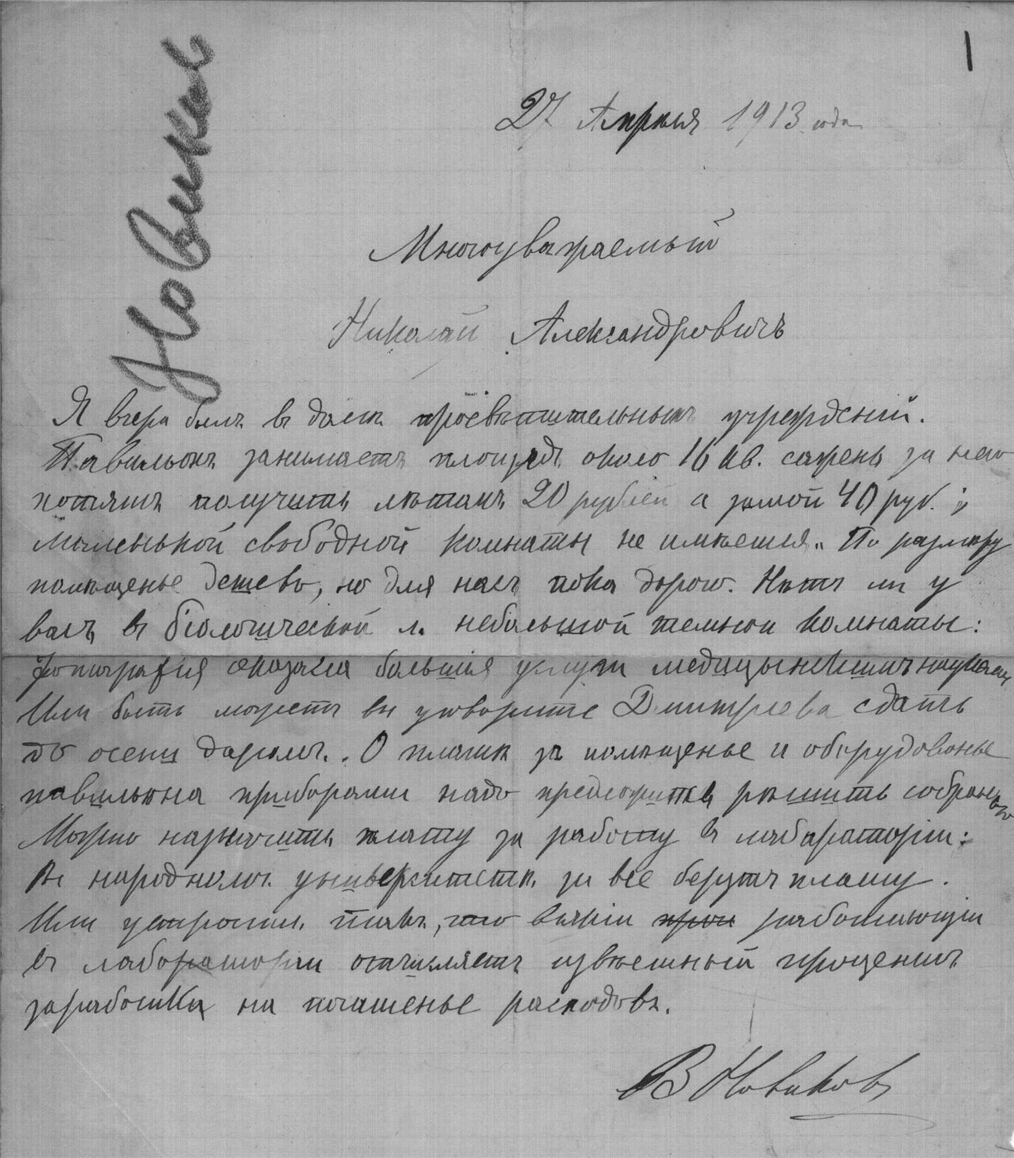 1
Новиков
27 Апреля 1913 года
Многоуважаемый
Николай Александровичъ
Я вчера былъ въ домѣ просвѣтительныхъ учрежденій.
Павильонъ занимаетъ площадь около 16 кв. сажень за него
хотятъ получить лѣтомъ 20 рублей а зимой 40 руб.;
маленькой свободной комнаты не имѣется. По размѣру
помѣщенье дешево, но для насъ пока дорого. Нѣтъ ли у
васъ въ біологической л. небольшой темной комнаты:
фотографія оказала большія услуги медицинскимъ наукамъ
Или быть можетъ вы уговорите Дмитріева сдать
до осени даромъ. О платѣ за помѣщенье и оборудованье
павильона приборами надо предложить рѣшить собранью
Можно назначить плату за работу въ лабораторіи:
Въ народномъ университетѣ за все берутъ плату.
Или устроимъ такъ, что всякій работающій
въ лабораторіи отчисляетъ извѣстный процентъ
заработка на погашенье расходовъ.
В Новиковъ